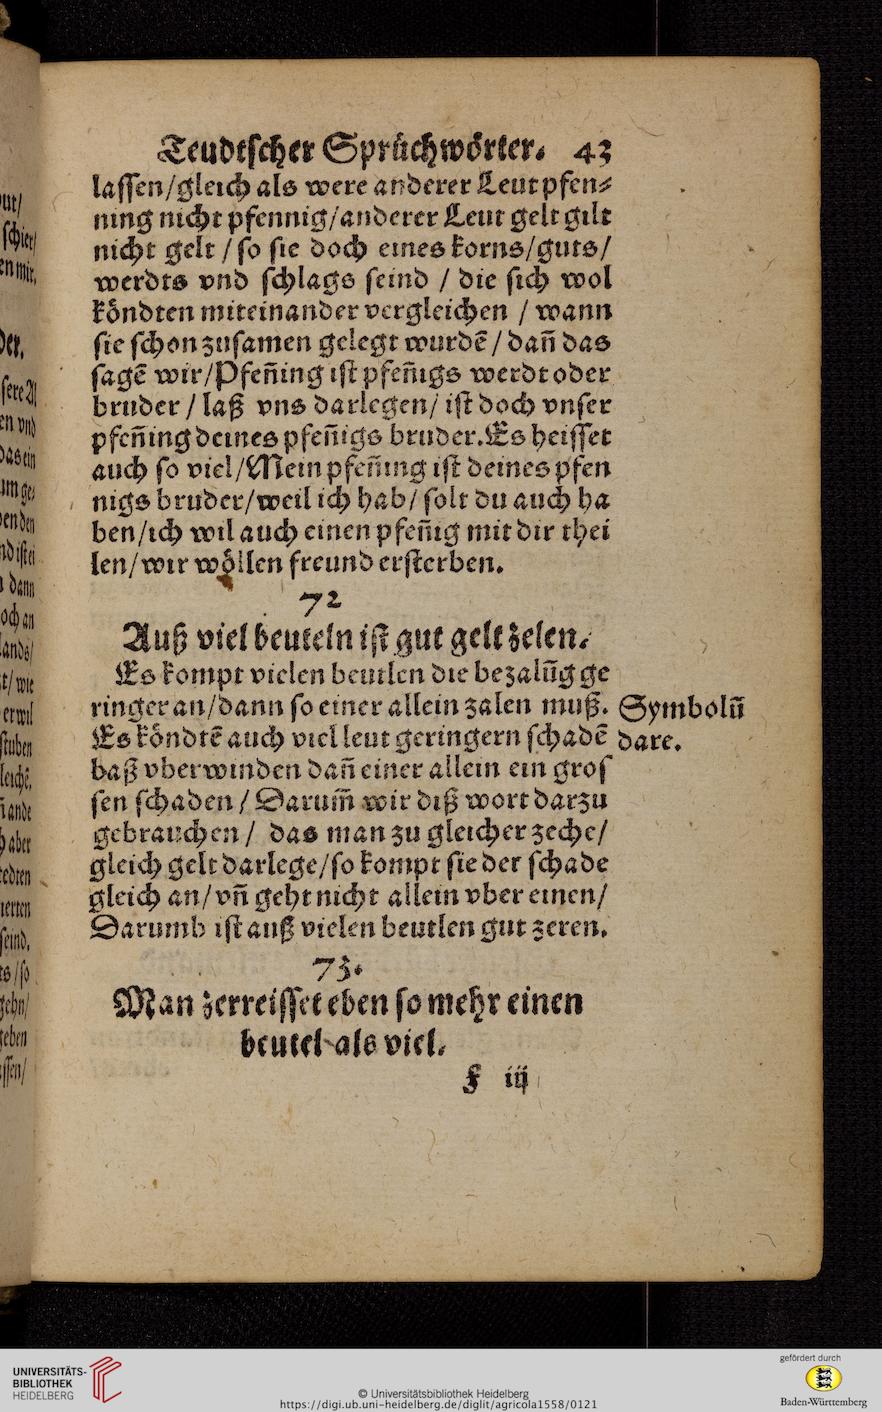 Teudtscher Sprüchwörter. 43
lassen/gleich als were anderer Leut pfen⸗
ning nicht pfennig/anderer Leut gelt gilt
nicht gelt / so sie doch eines korns/guts/
werdts vnd schlags seind / die sich wol
köndten miteinander vergleichen / wann
sie schon zusamen gelegt wurdē / dañ das
sagē wir/Pfeñing ist pfeñigs werdt oder
bruder / laß vns darlegen/ ist doch vnser
pfeñing deines pfeñigs bruder. Es heisset
auch so viel/Mein pfeñing ist deines pfen
nigs bruder/weil ich hab/ solt du auch ha
ben/ich wil auch einen pfeñig mit dir thei
len/wir wöllen freund ersterben.
72
Auß viel beuteln ist gut gelt zelen.
Es kompt vielen beutlen die bezalūg ge
ringer an/dann so einer allein zalen muß.
Symbolū
Es köndtē auch viel leut geringern schadē
dare.
baß vberwinden dañ einer allein ein gros
sen schaden / Darum̄ wir diß wort darzu
gebrauchen / das man zu gleicher zeche/
gleich gelt darlege/so kompt sie der schade
gleich an/vñ geht nicht allein vber einen/
Darumb ist auß vielen beutlen gut zeren.
73.
Man zerreisset eben so mehr einen
beutel als viel.
F iij
UNIVERSITÄTS-
BIBLIOTHEK
HEIDELBERG
© Universitätsbibliothek Heidelberg
https://digi.ub.uni-heidelberg.de/diglit/agricola1558/0121
gefördert durch
Baden-Württemberg